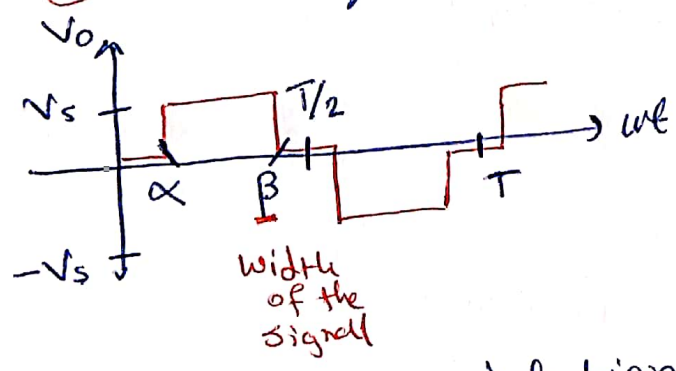 Vo
Vs
T/2
ωt
α
β
T
-Vs
width
of the
signall